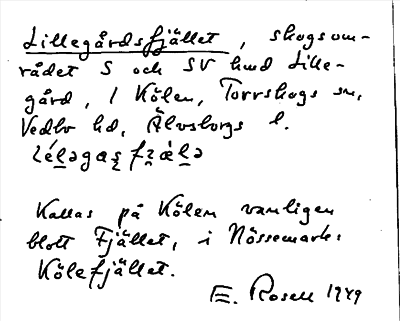 Lillegårdsfjället, skogsom-
rådet S och SV hmd Lille-
gård, i Kölen, Torrskogs sn,
Vedbo hd, Älvsborgs l.
léləgaʂfʐæ̀lə
Kallas på Kölen vanligen
blott Fjället, i Nössemark:
Kölefjället.
E. Rosell 1949